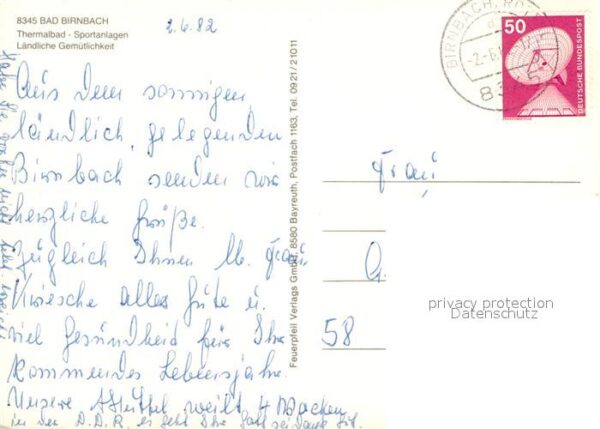 8345 BAD BIRNBACH
Thermalbad - Sportanlagen
Ländliche Gemütlichkeit
2.6.82
Aus dem sonnigen
ländlich, gelegenden
Birnbach senden wir
herzliche Grüße.
Zugleich Ihnen lb. Frau
Wünsche alles Gute u.
viel Gesundheit für Ihr
kommendes Lebensjahr.
Unsere Mutter weilt 4 Wochen
in der D.D.R. es geht Ihr Gott sei Dank gut.
Feuerpfeil Verlags GmbH, 8580 Bayreuth, Postfach 1163, Tel. 0921/21011
BIRNBACH, ROTT
50
DEUTSCHE BUNDESPOST
Frau
G.
58
privacy protection
Datenschutz